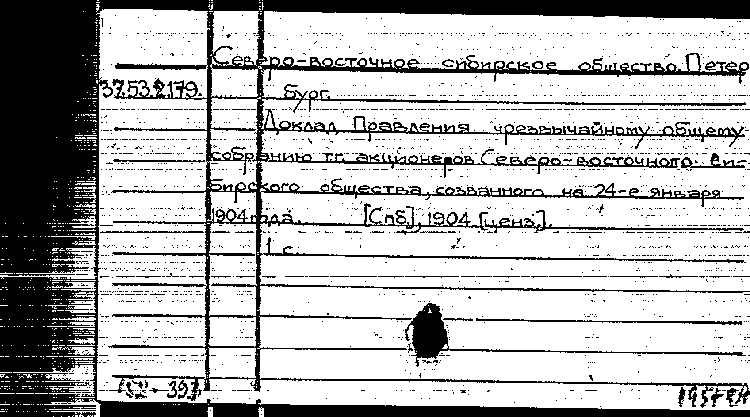 Северо-восточное сибирское общество. Петер
37.53.2.179.
бург.
Доклад Правления чрезвычайному общему
собранию гг. акционеров Северо-восточного Си-
бирского общества, созванного на 24-е января
1904 года. [Спб], 1904 [ценз.].
1 с.